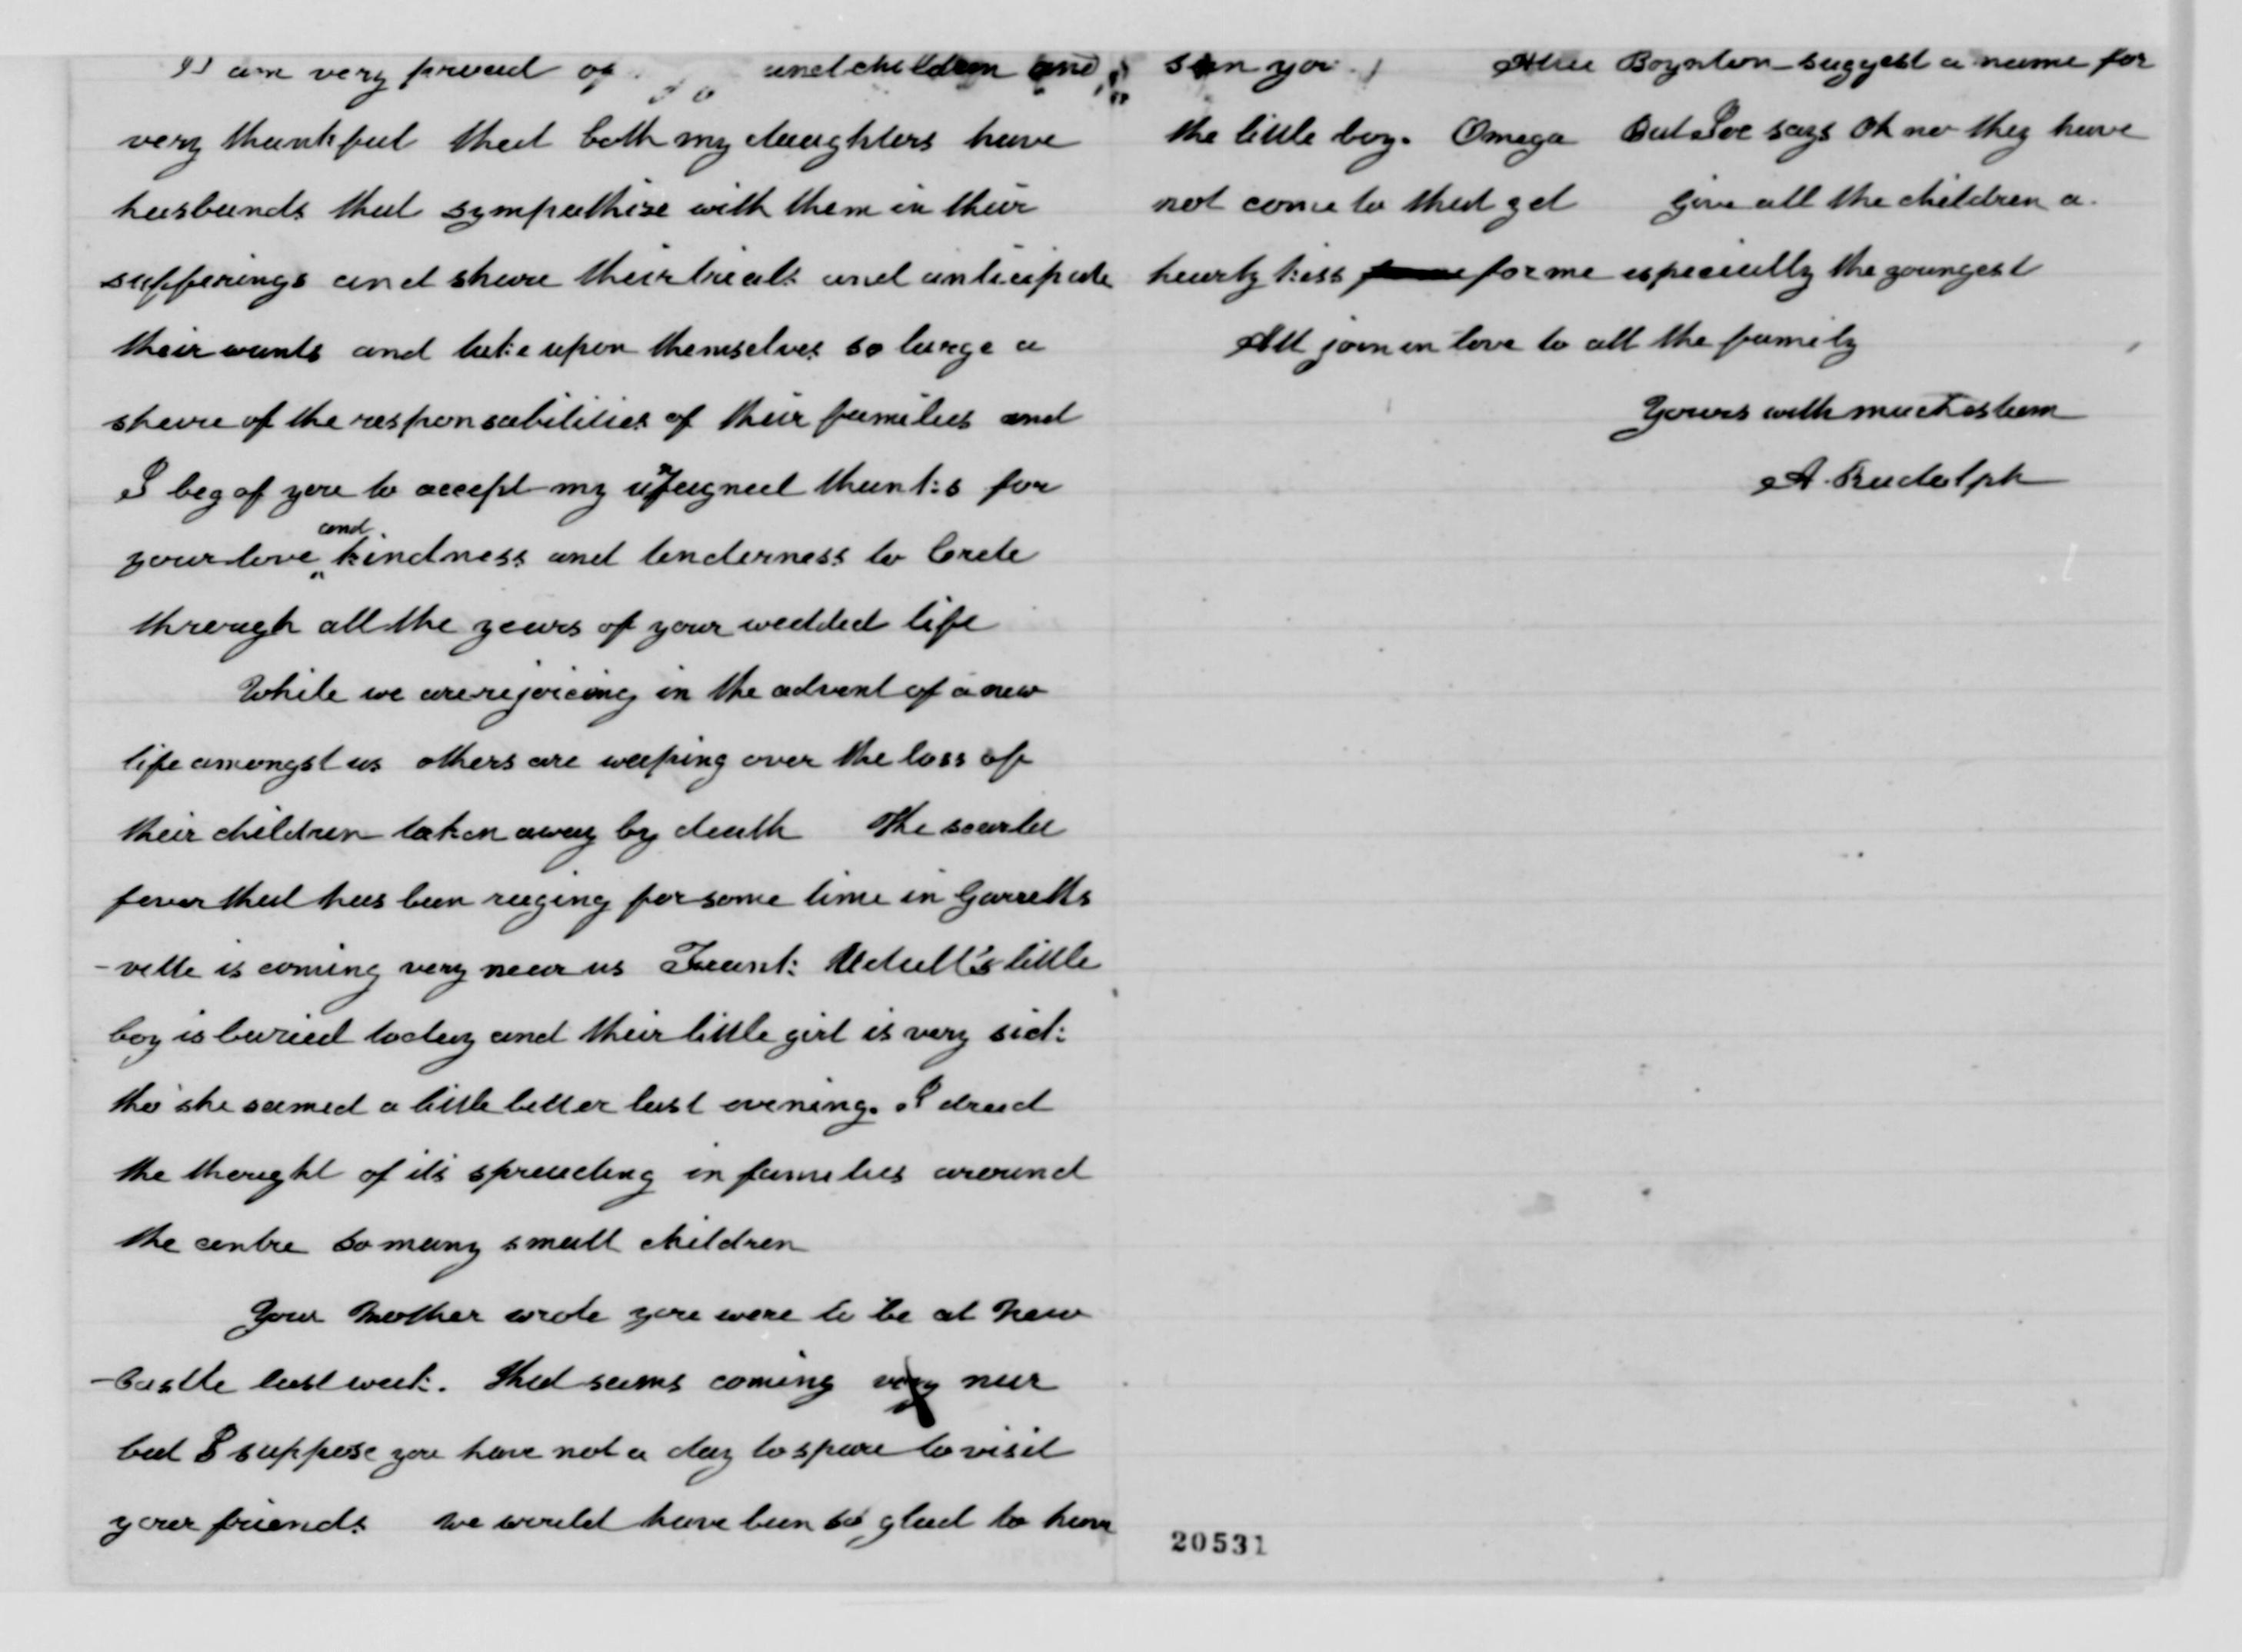 I am very proud of grandchildren and
very thankful that both my daughters have
husbands that sympathise with them in their
sufferings and share their trials and anticipate
their wants and take upon themselves so large a
share of the responsabilities of their families and
I beg of you to accept my unfeigned thanks for
your love and kindness and tenderness to Crete
through all the years of your wedded life
While we are rejoicing in the advent of a new
life amongst us others are weeping over the loss of
their children taken away by death The scarlet
fever that has been raging for some time in Garretts
-ville is coming very near us Frank Udall's little
boy is buried today and their little girl is very sick
tho' she seemed a little better last evening. I dread
the thought of its spreading in families around
the centre so many small children
Your Mother wrote you were to be at New
-Castle last week. That seems coming very near
but I suppose you have not a day to spare to visit
your friends we would have been so glad to have
seen you Boynton suggest a name for
the little boy. Omega But Joe says Oh no they have
not come to that yet Give all the children a
hearty kiss for me especially the youngest
All join in love to all the family
Yours with much esteem
A. Rudolph
20531